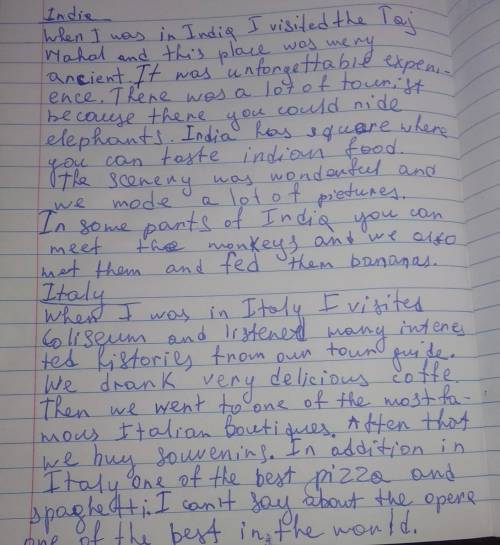 India
When I was in India I visited the Taj
Mahal and this place was very
ancient. It was unforgettable experi-
ence. There was a lot of tourist
because there you could ride
elephants. India has square where
you can taste indian food.
The scenery was wonderful and
we made a lot of pictures.
In some parts of India you can
meet the monkeys and we also
met them and fed them bananas.
Italy
When I was in Italy I visited
Coliseum and listened many interes
ted histories from our tour guide.
We drank very delicious coffe
Then we went to one of the most fa-
mous Italian boutiques. After that
we buy souvenirs. In addition in
Italy one of the best pizza and
spaghetti. I can't say about the opera
one of the best in the world.